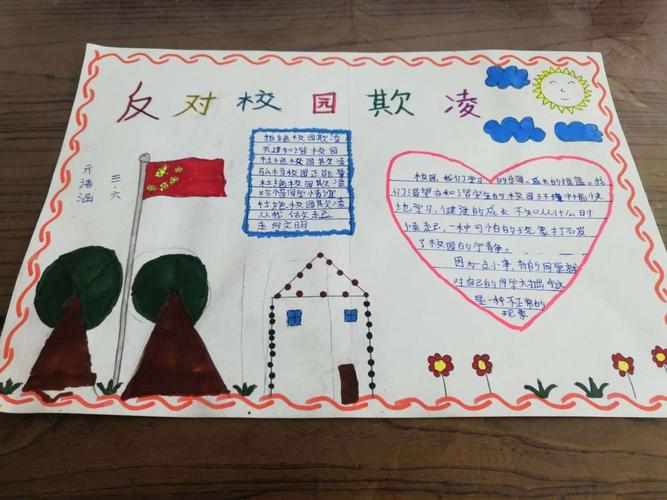 反对校园欺凌
三.六
亓浩涵
拒绝校园欺凌
共建和谐校园
杜绝校园欺凌
弘扬校园正能量
杜绝校园欺凌
珍惜同学情谊
杜绝校园欺凌
从我做起
走向文明
校园,我们学习的乐园、成长的摇篮。我
们渴望在和谐学生的校园环境中愉快
地学习,健康的成长 不知从什么时
候起,一种可怕的现象打破
了校园的宁静。
因为一点小事,有的同学就
对自己的同学大打出手这
是一种不正常的
现象